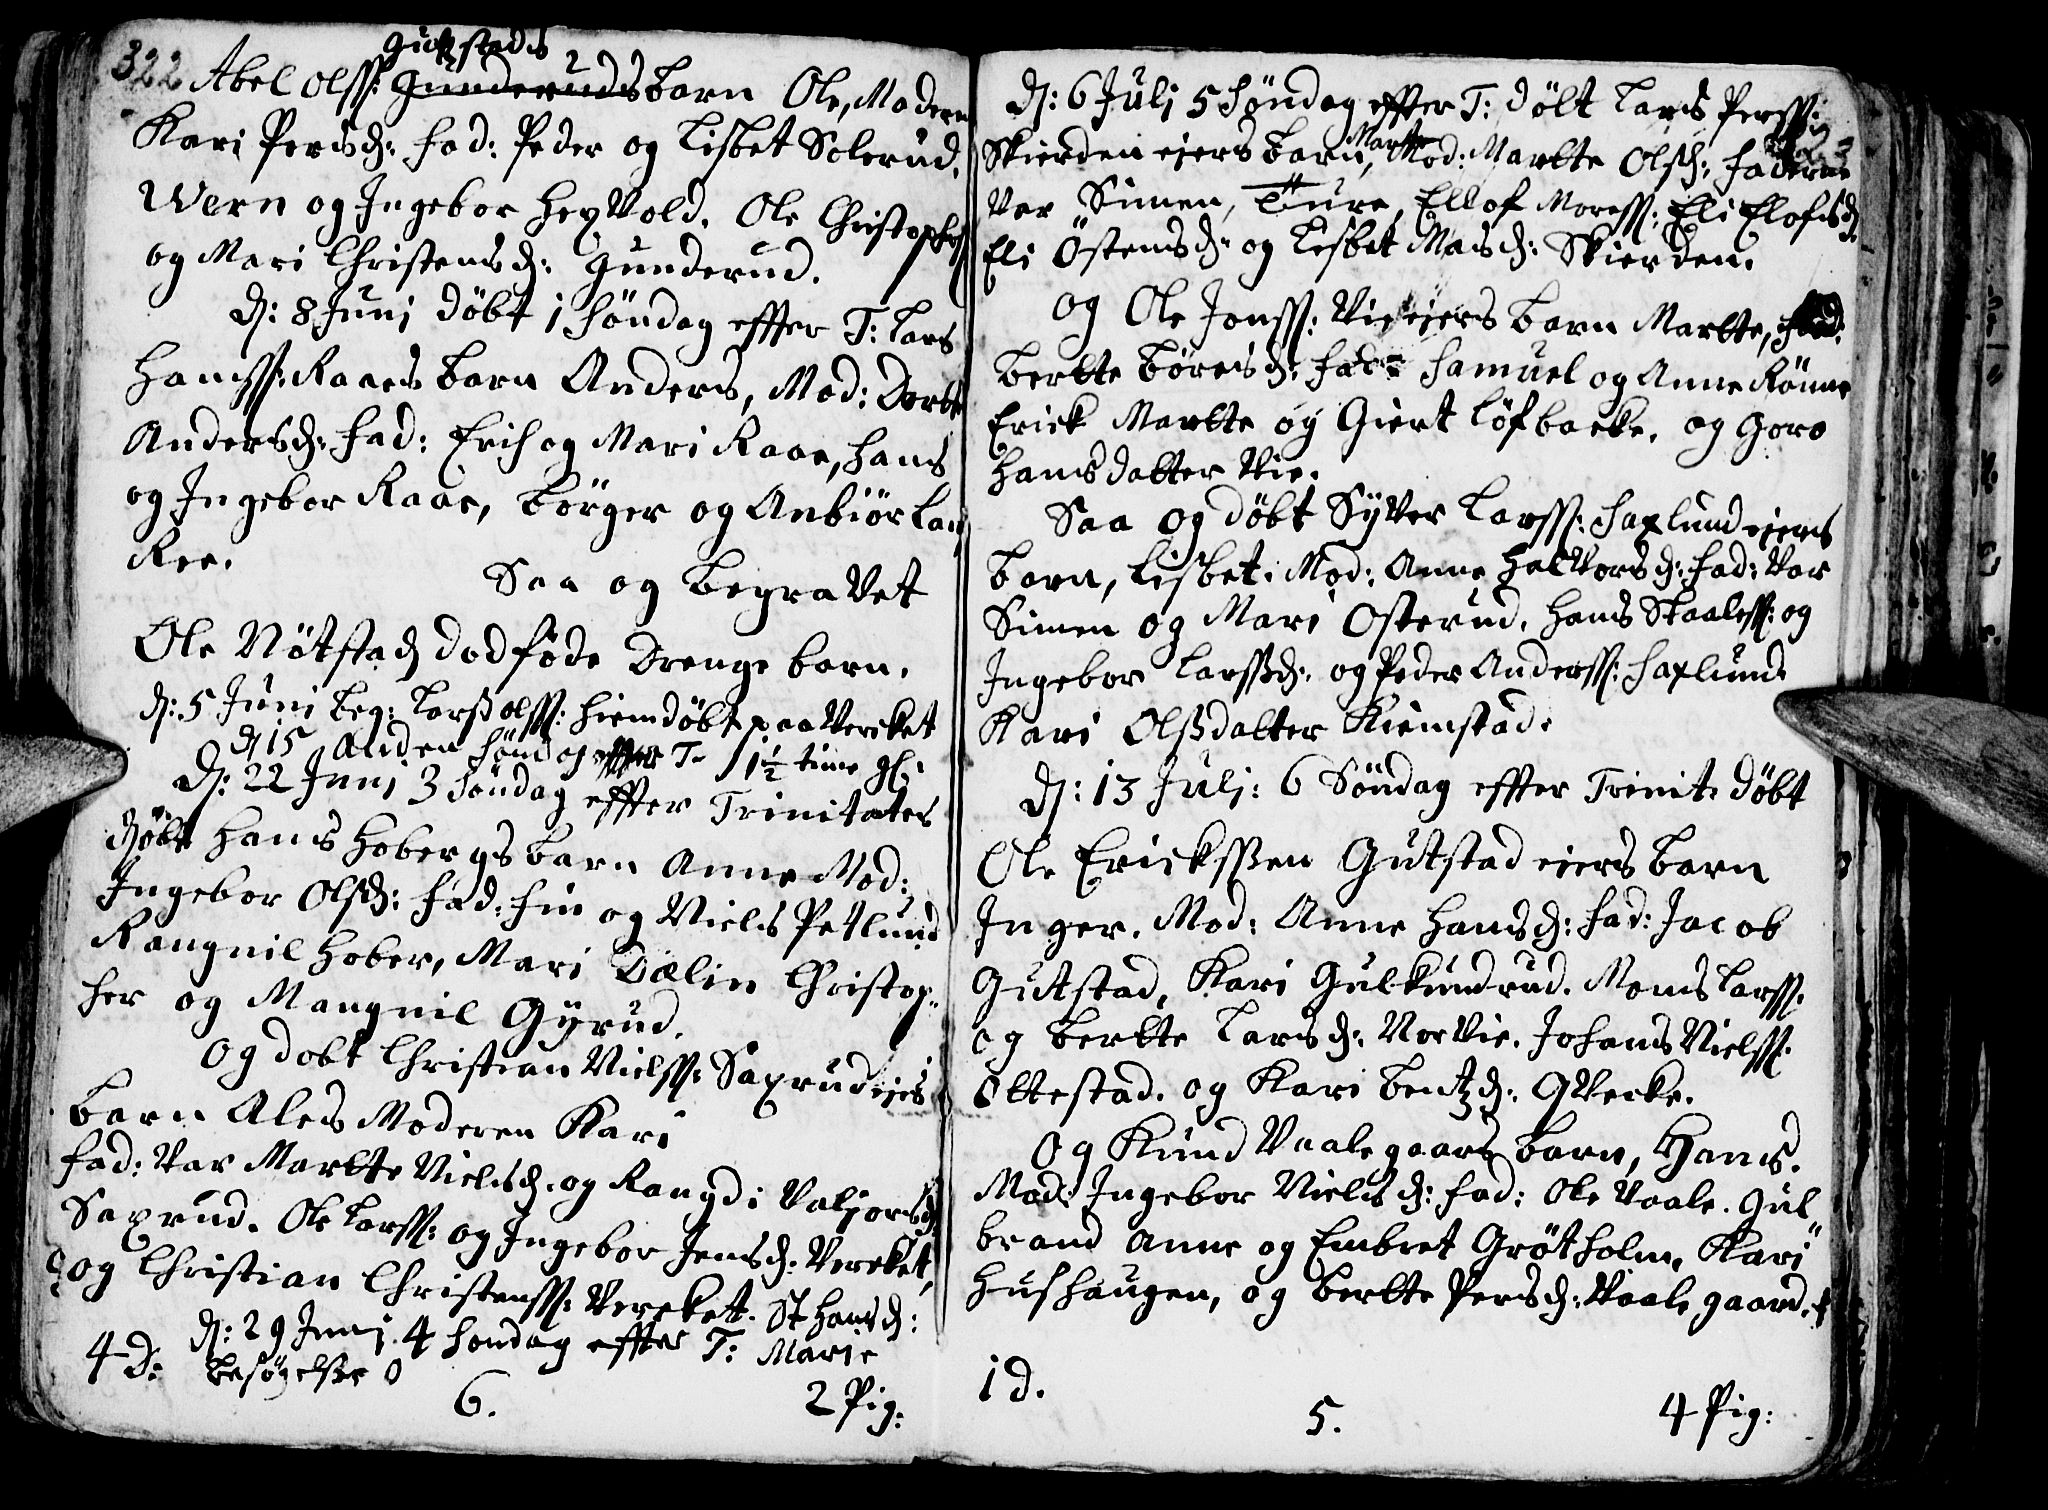 322 Abel Olss: Gutstads
Gunderuds barn Ole, Moderen
Kari Persd: fad: Peder og Lisbet Solerud.
Wern og Ingebor Hexvold. Ole Christophs
og Mari Christensd: Gunderud.
D: 8 Junj döbt 1 Söndag effter T: Lars
Hanss: Raaes barn Anders, Mod: Dorte
Andersd: fad: Erich og Mari Raae, Hans
og Ingebor Raae, Börger og Anbiör Lan
Ree.
Saa og begravet
Ole Nötstad dodföde Drenge barn.
D: 5 Juni beg: Larss olss: Hiemdöbt paa Vercket
D 15 Anden Söndag effter T. 1 1/2 time gl:
D: 22 Junj 3 Söndag effter Trinitates
Döbt Hans Hobergs barn Anne Mod:
Ingebor Olsd: fad: Fin og Niels Petlund
Rangnil Hober, Mari Dælin Christop-
her og Mangnil Gÿrud.
Og dobt Christian Nielss: Saxrudeies
barn Ales Moderen Kari
fad: Var Martte Nielsd. og Rangdi Valjorsd
Saxrud. Ole Larss: og Ingebor Jensd: Vercket,
og Christian Christenss: Vercket. St Hans d:
D: 29 Junj. 4 Sondag effter T: Marie
4 D: besögelsse 0
6. 2 Pig:
D: 6 Julj 5 Söndag effter T: Dölt Lars Perss:
323
Skierden eiers barn, Martte Mod: Martte Olsd: faderne
Var Simen, Ture, Ellof Moress: Eli Elofsd
Eli Östensd: og Lisbet Masd: Skierden.
Og Ole Jonss: Vie eiers barn Martte,
Bertte Böresd: fad: Samuel og Anne Rönne
Erick Martte og Giert Löfbacke. og Goro
Hansdatter Vie.
Saa og döbt Syver Larss: Haxlund eiers
barn, Lisbet. Mod: Anne Halvorsd: fad: Var
Simen og Mari Osterud. Hans Staaless: og
Ingebor Larssd: og Peder Anderss: Haxlund
Kari Olssdatter Kiemstad.
D: 13 Julj: 6 Söndag effter Trinit: döbt
Ole Erickssen Gutstad eiers barn
Inger. Mod: Anne Hansd: fad: Jacob
Gutstad, Kari Gulkundrud. Mons Larss:
og Bertte Larsd: Norvie. Johans Nielss:
Ottestad. og Kari Bentzd: Qvecke.
Og Knud Vaalegaards barn, Hans.
Mod: Ingebor Nielsd: fad: Ole Vaale. Gul
brand Anne og Embret Grötholm, Kari
Hushaugen, og Bertte Persd: Vaalegaard.
1 d.
5. 4 Pig: